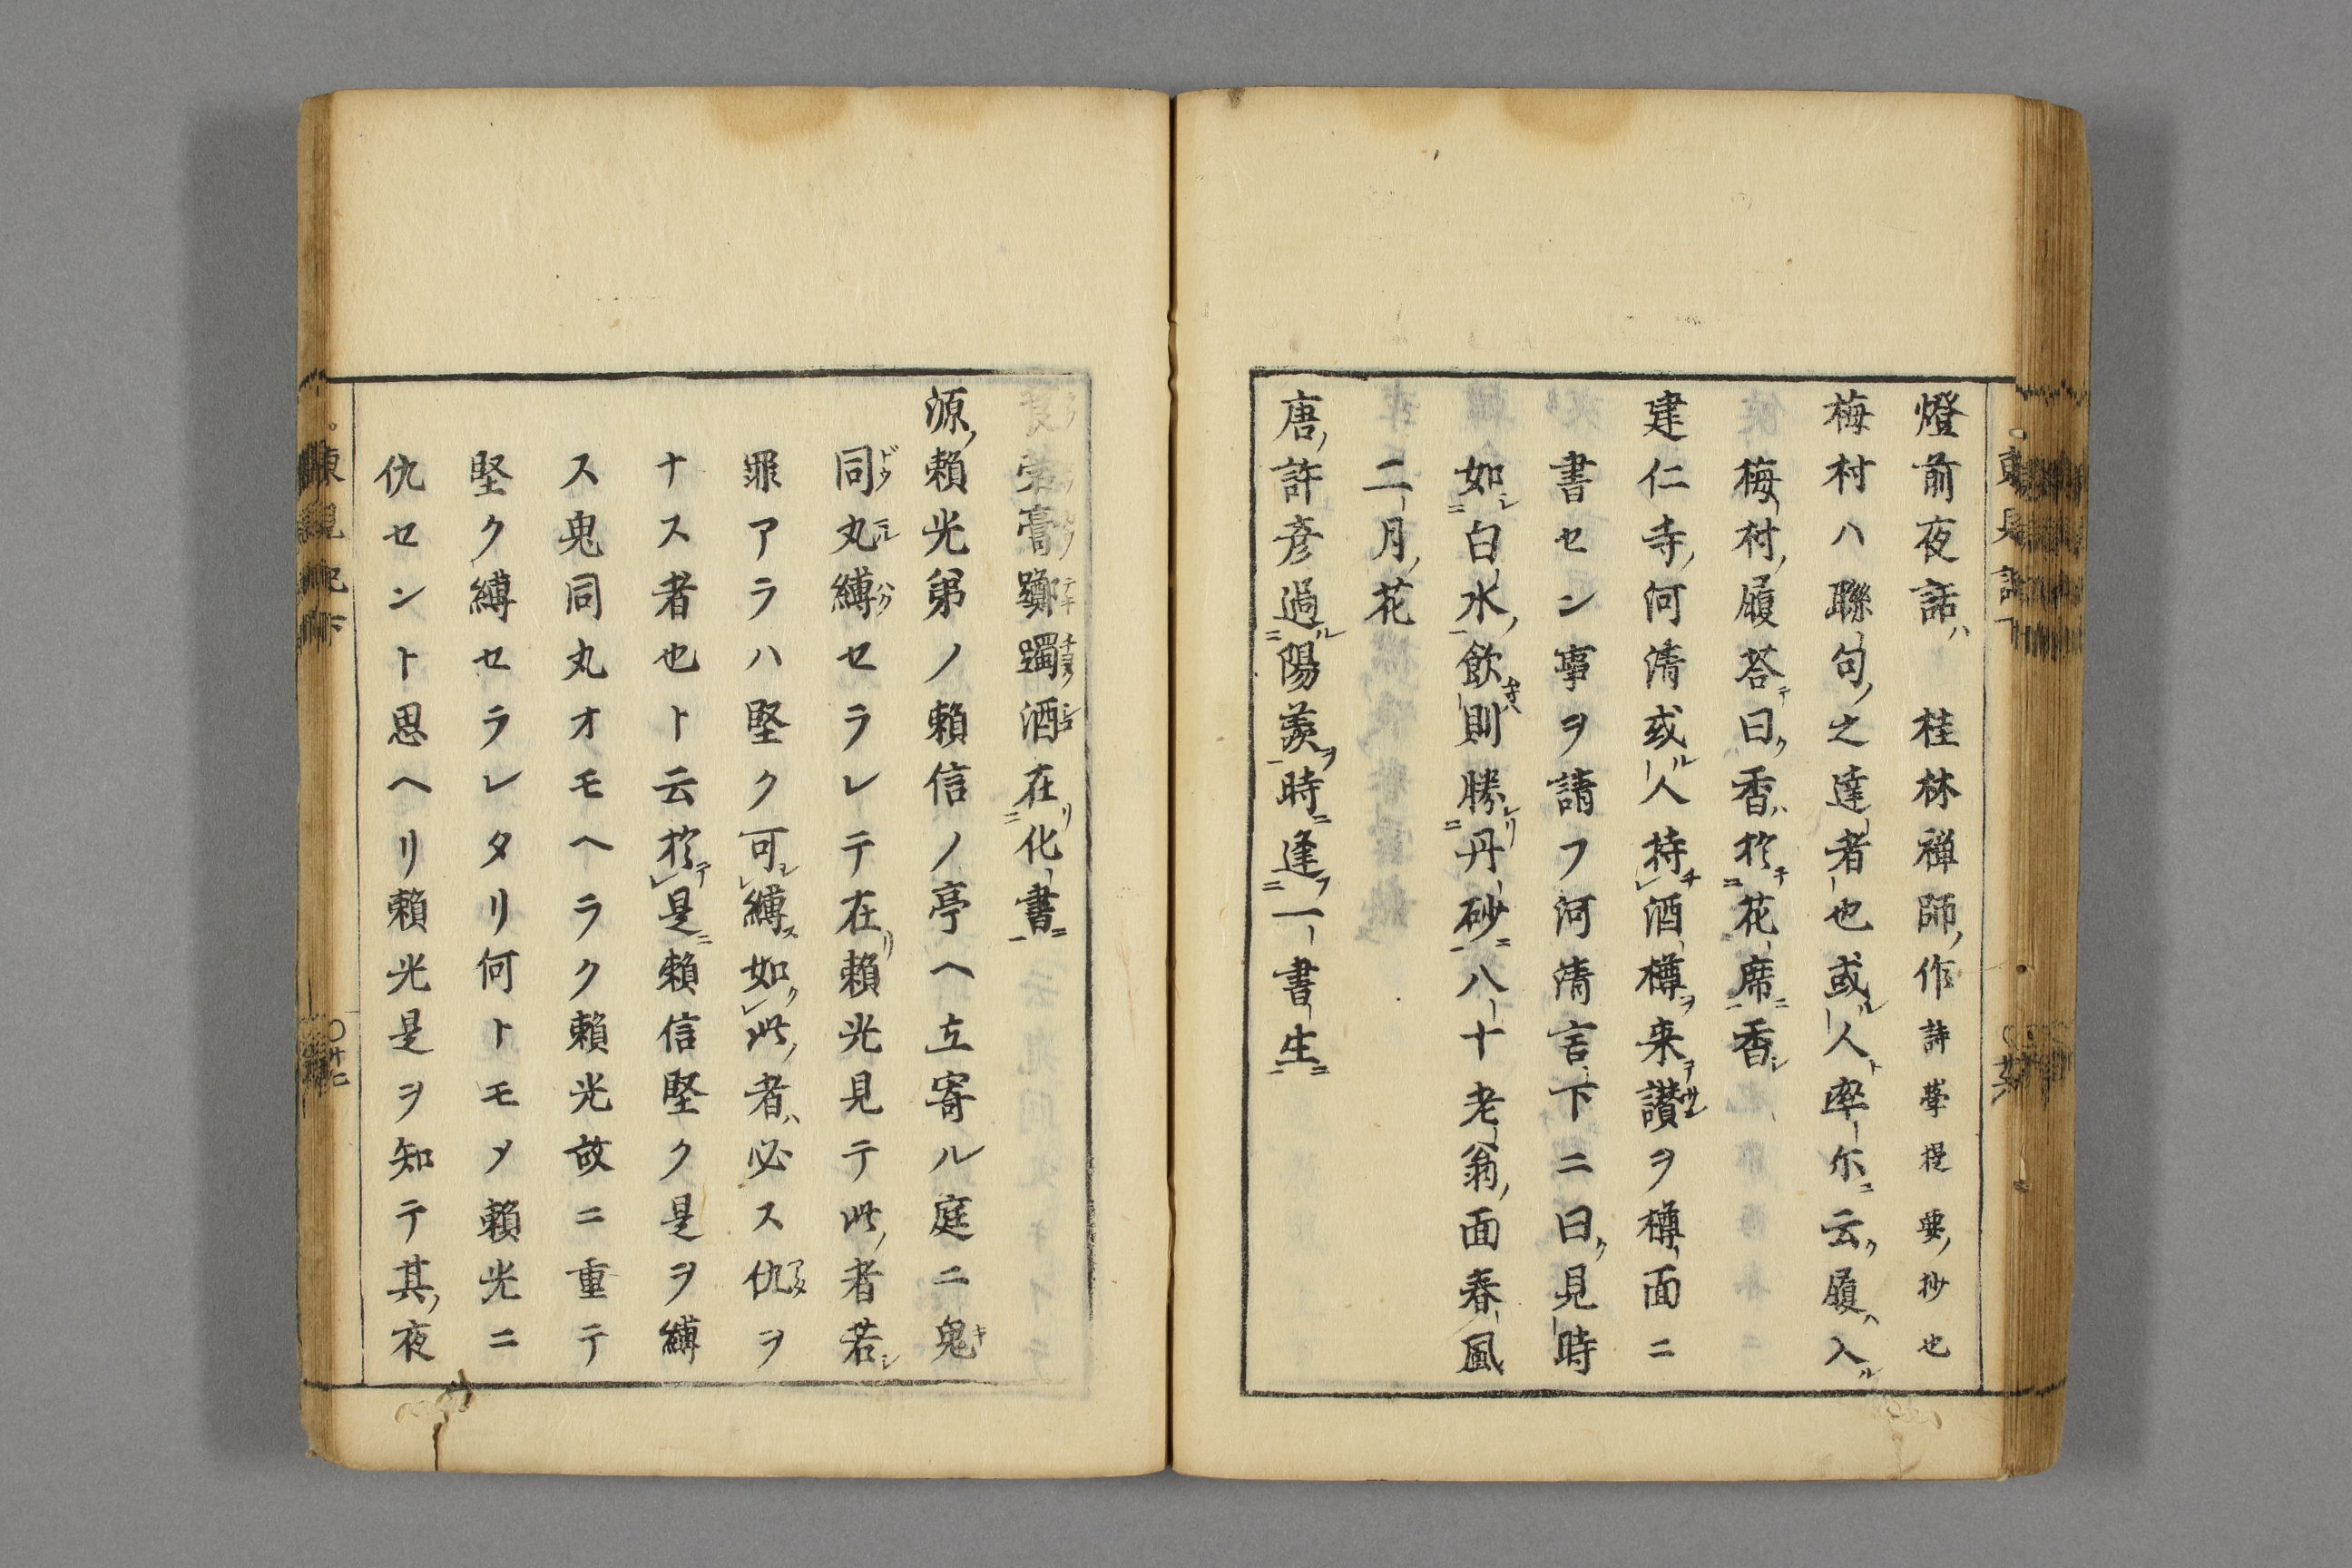 燈前夜話ハ桂林禅師ノ作詩学提要ノ抄也
梅村ハ聯句ノ之達者也或ル人率尓ニ云ク履ハ入ル
梅村ノ履荅テ曰ク香ハ於テ花席ニ香シ
建仁寺ノ河清或ル人持チ酒樽ヲ来テ讃ヲ樽面ニ
書セン事ヲ請フ河清言下ニ曰ク見時
如シ白水ノ飲則勝レリ丹砂ニ八十老翁ノ面春風
二月ノ花
唐ノ許彦過ル陽羨ヲ時ニ逢フ一書生ニ
東見記下
酒在リ化書ニ
源ノ頼光弟ノ頼信ノ亭ヘ立寄ル庭ニ鬼キ
同ドウ丸マル縛バクセラレテ在リ頼光見テ此ノ者若シ
罪アラハ堅ク可シ縛ス如ク此ノ者ハ必ス仇アタヲ
ナス者也ト云於テ是ニ頼信堅ク是ヲ縛
ス鬼同丸オモヘラク頼光故ニ重テ
堅ク縛セラレタリ何トモメ頼光ニ
仇セント思ヘリ頼光是ヲ知テ其ノ夜
東見記下